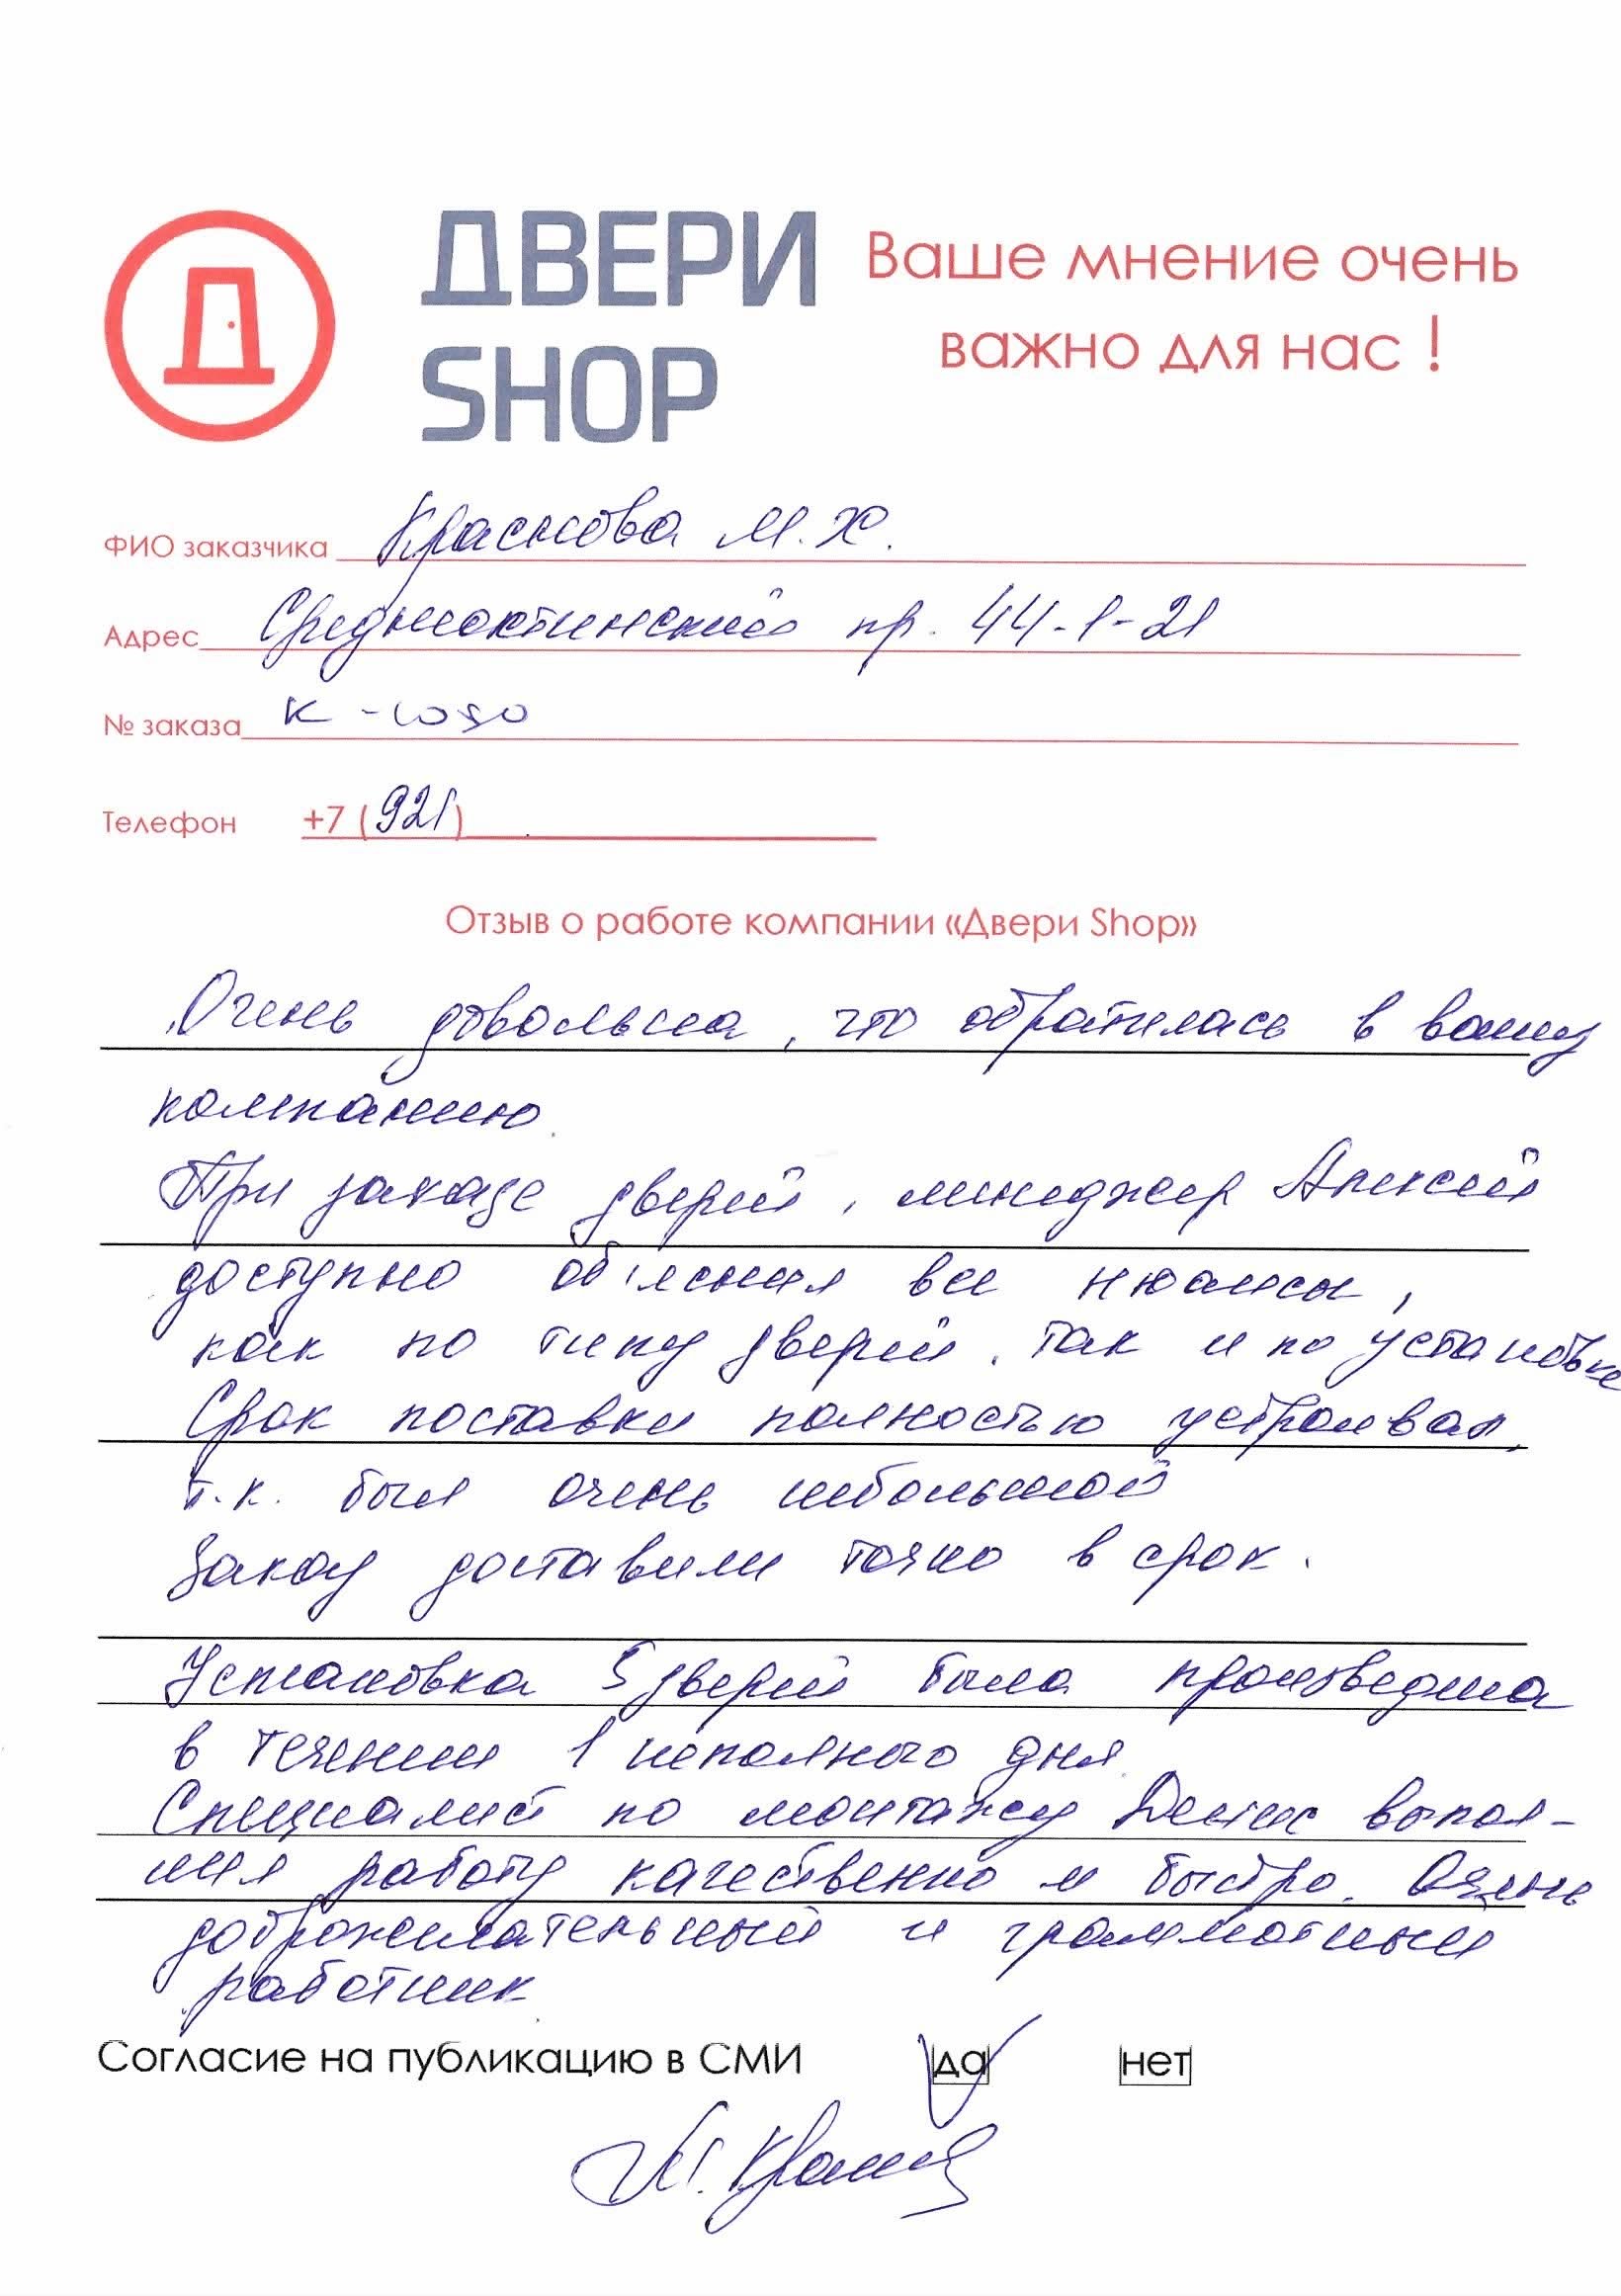 ДВЕРИ
SHOP
Ваше мнение очень
важно для нас !
ФИО заказчика Краснова М.Х.
Адрес Среднеохтинский пр. 44-1-21
№ заказа К -1050
Телефон +7 (921)
Отзыв о работе компании «Двери Shop»
Очень довольна, что обратилась в вашу
компанию.
При заказе дверей, менеджер Алексей
доступно об'яснил все нюансы,
как по типу дверей, так и по установке
Срок поставки полностью устроивал,
т.к. был очень небольшой
Заказ доставили точно в срок.
Установка 5 дверей была произведена
в течении 1 неполного дня.
Специалист по монтажу Денис выпол-
нил работу качественно и быстро. Очень
доброжелательный и грамотный
работник
Согласие на публикацию в СМИ да нет